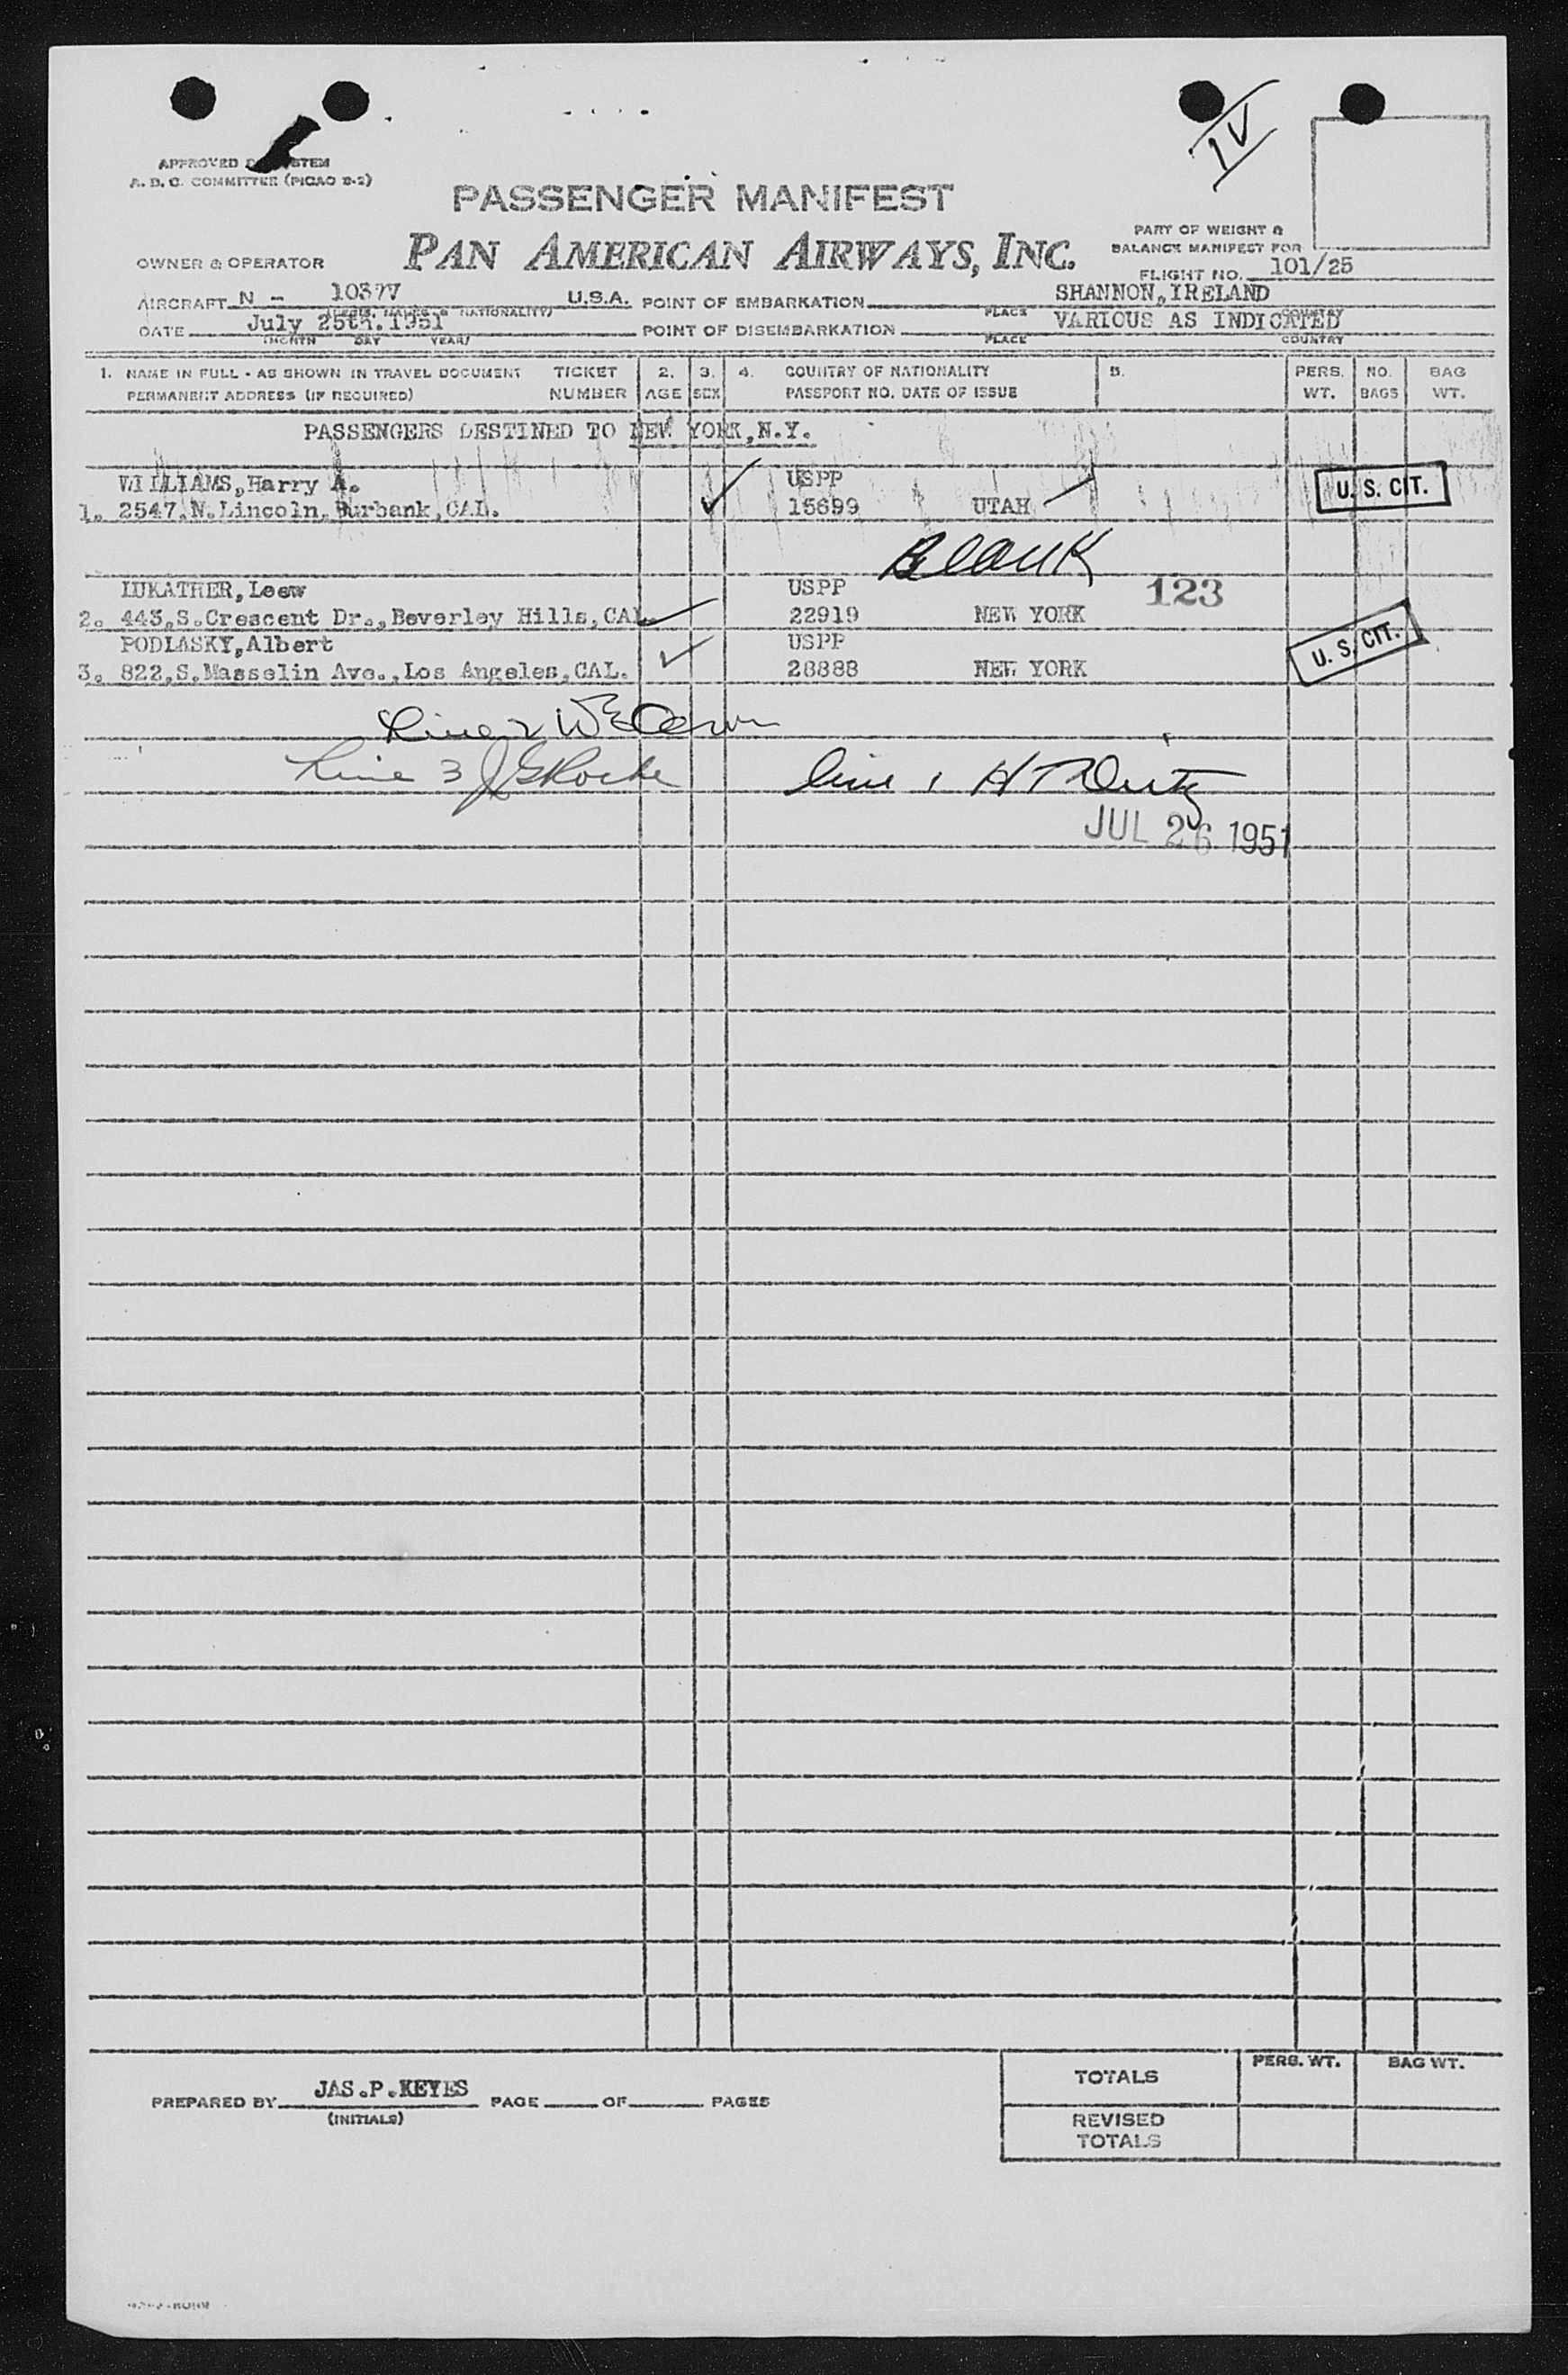 IV
APPROVED STEM
A. B. C. COMMITTEE (PICAO B-2)
PASSENGER MANIFEST
PART OF WEIGHT &
BALANCE MANIFEST FOR
OWNER & OPERATOR PAN AMERICAN AIRWAYS, INC.
FLIGHT NO. 101/25
AIRCRAFT N - 1037V U.S.A. POINT OF EMBARKATION SHANNON, IRELAND
PLACE COUNTRY
DATE July 25th. 1951 POINT OF DISEMBARKATION VARIOUS AS INDICATED
(MONTH DAY YEAR) PLACE COUNTRY
1. NAME IN FULL - AS SHOWN IN TRAVEL DOCUMENT TICKET 2. 3. 4. COUNTRY OF NATIONALITY 5. PERS. NO. BAG
PERMANENT ADDRESS (IF REQUIRED) NUMBER AGE SEX PASSPORT NO. DATE OF ISSUE WT. BAGS WT.
PASSENGERS DESTINED TO NEW YORK, N.Y.
WILLIAMS, Harry A. USPP
1. 2547, N. Lincoln, Burbank, CAL. 15699 UTAH U. S. CIT.
Blank
LUKATHER, Leew USPP 123
2. 443, S. Crescent Dr., Beverley Hills, CAL. 22919 NEW YORK
PODLASKY, Albert USPP U. S. CIT.
3. 822, S. Masselin Ave., Los Angeles, CAL. 28888 NEW YORK
Line 2
Line 3 J G Roche line 1 H T
JUL 26 1951
TOTALS PERS. WT. BAG WT.
PREPARED BY JAS. P. KEYES PAGE OF PAGES
(INITIALS)
REVISED
TOTALS